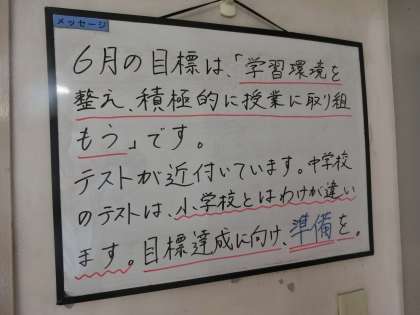 メッセージ
6月の目標は、「学習環境を
整え、積極的に授業に取り組
もう」です。
テストが近付いています。中学校
のテストは、小学校とはわけが違い
ます。目標達成に向け、準備を。